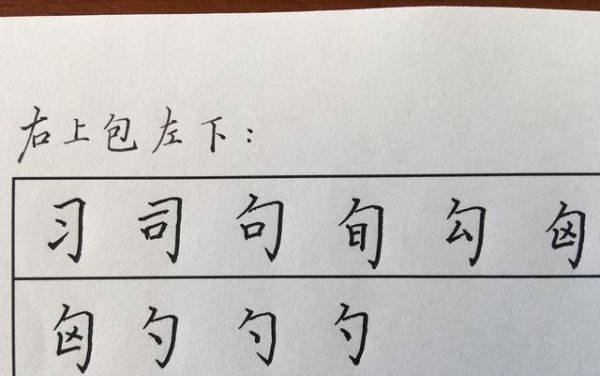 右上包左下：
习 司 句 旬 勾 匈
匈 勺 勺 勺